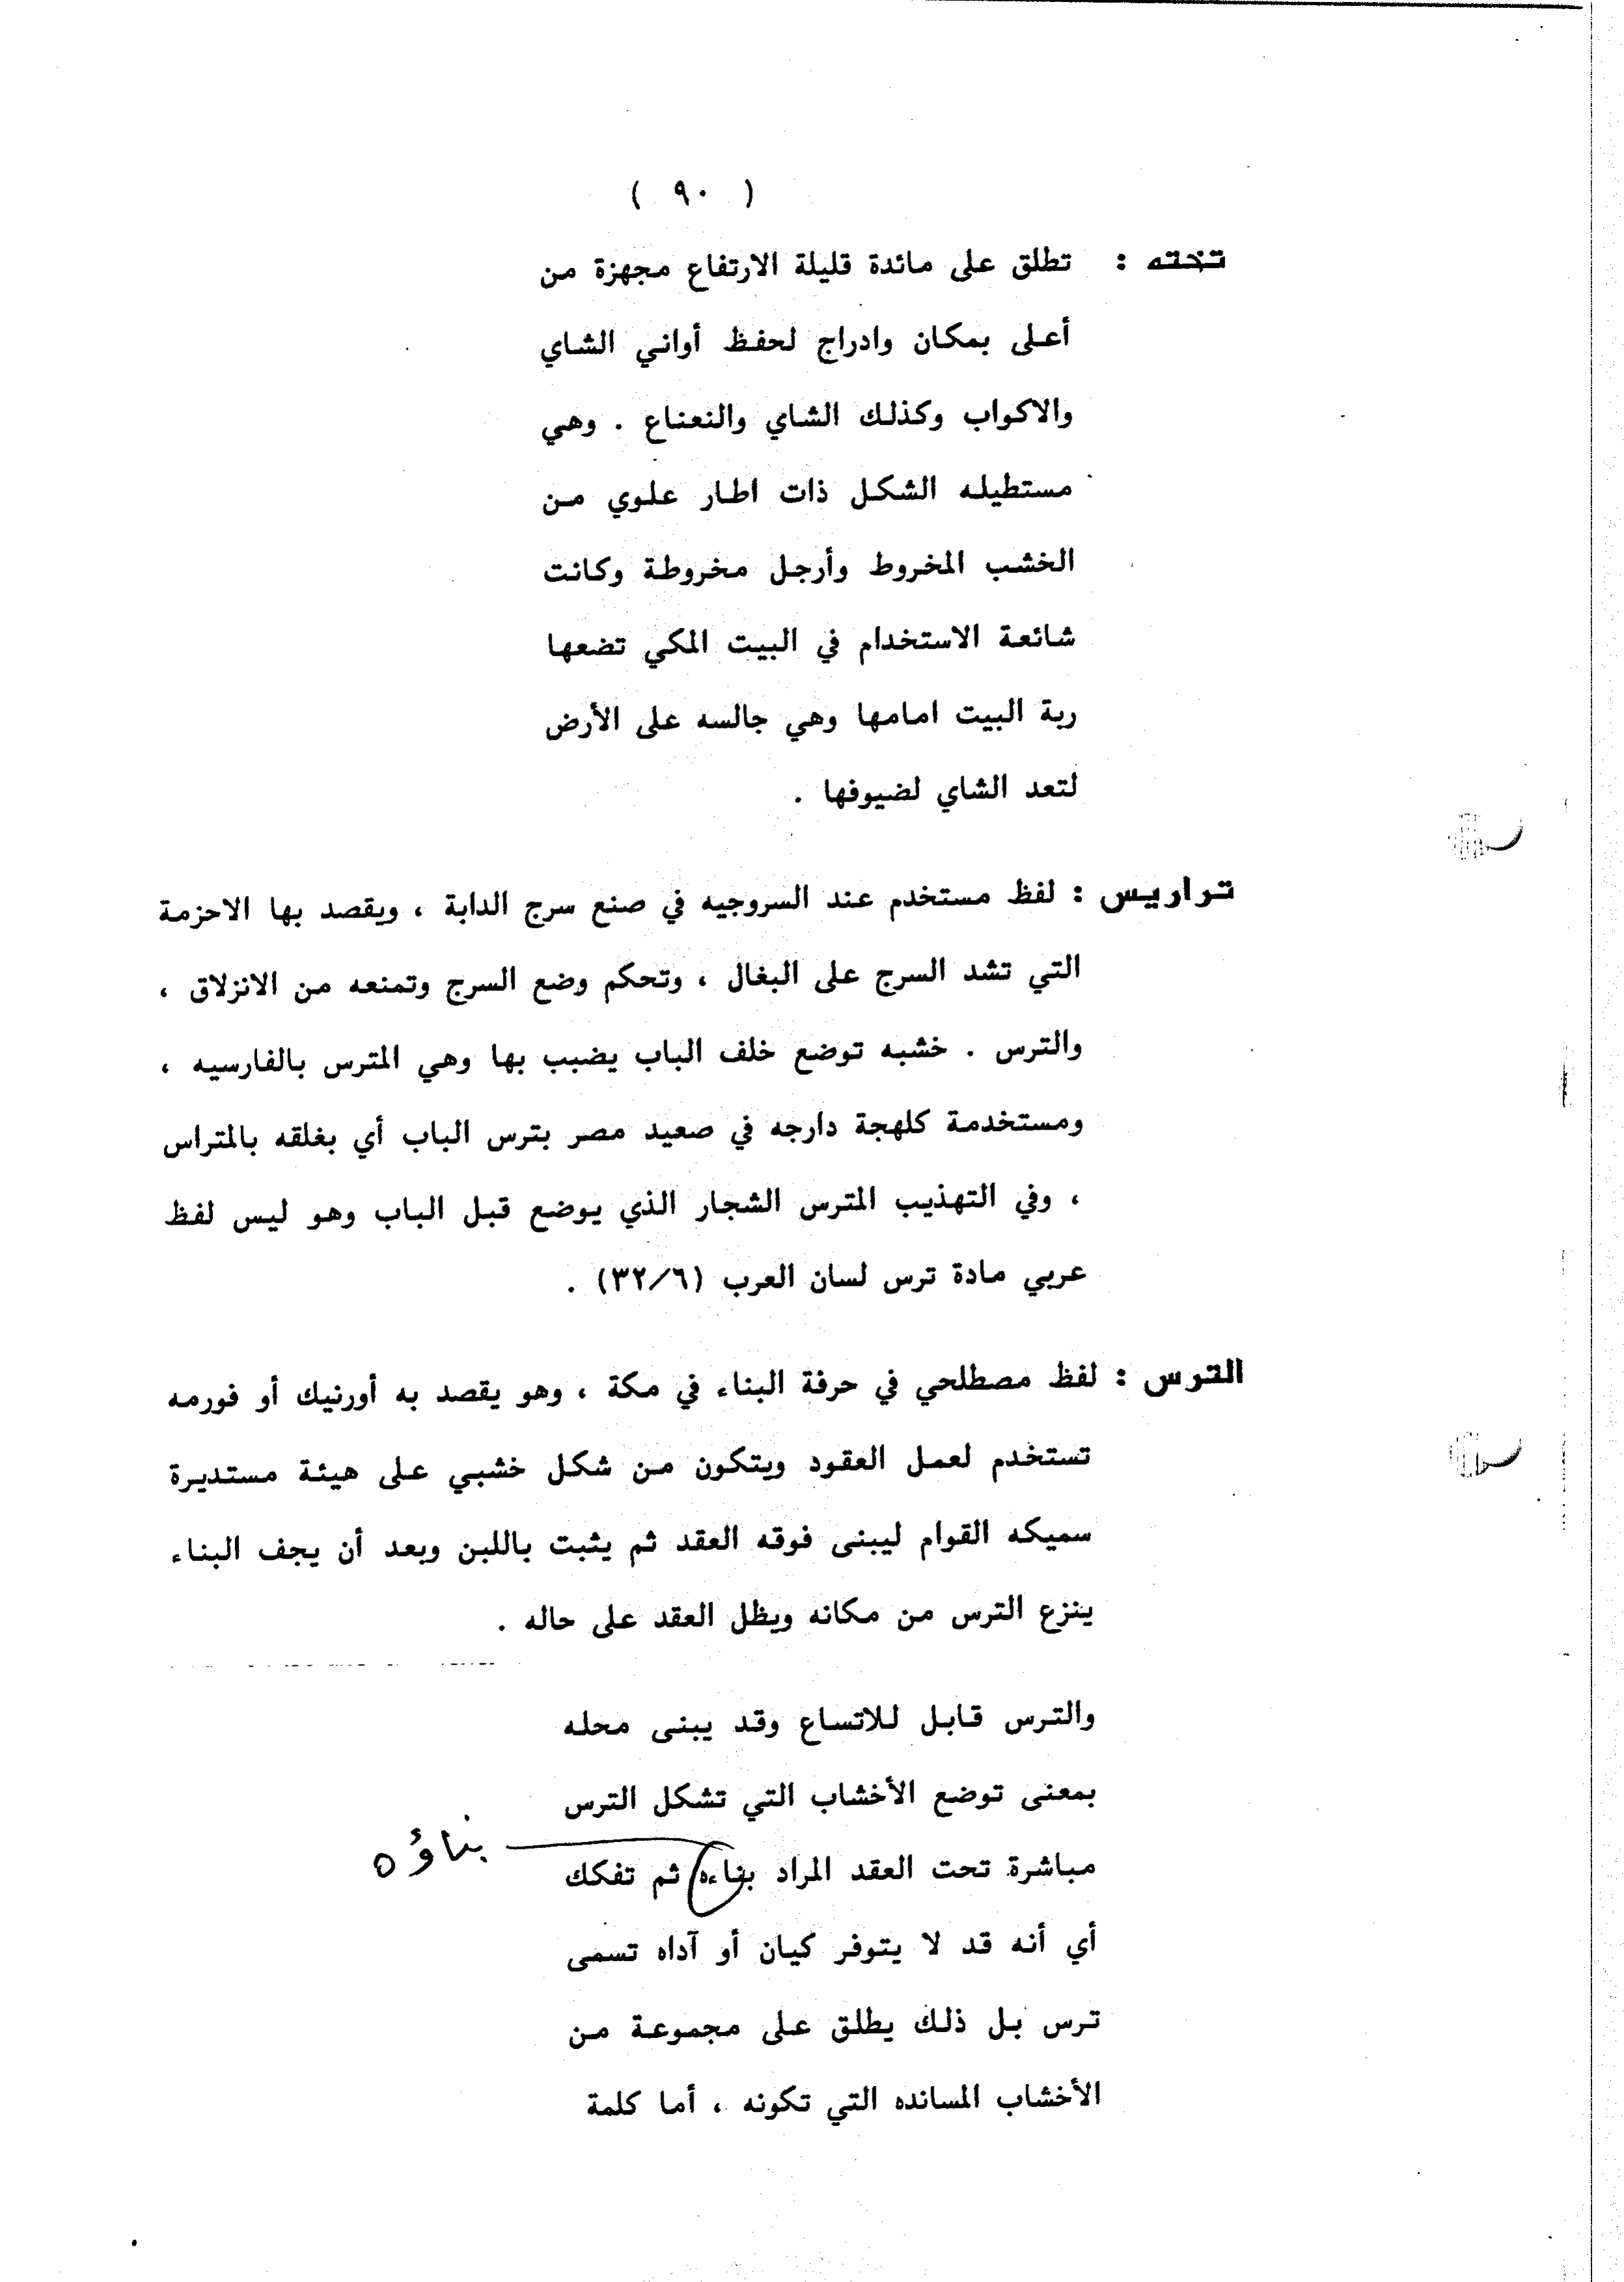 ( ٩٠ )
تخته : تطلق على مائدة قليلة الارتفاع مجهزة من
أعلى بمكان وادراج لحفظ أواني الشاي
والاكواب وكذلك الشاي والنعناع . وهي
مستطيله الشكل ذات اطار علوي من
الخشب المخروط وأرجل مخروطة وكانت
شائعة الاستخدام في البيت المكي تضعها
ربة البيت امامها وهي جالسه على الأرض
لتعد الشاي لضيوفها .
تراريس : لفظ مستخدم عند السروجيه في صنع سرج الدابة ، ويقصد بها الاحزمة
التي تشد السرج على البغال ، وتحكم وضع السرج وتمنعه من الانزلاق ،
والترس . خشبه توضع خلف الباب يضبب بها وهي المترس بالفارسيه ،
ومستخدمة كلهجة دارجه في صعيد مصر بترس الباب أي بغلقه بالمتراس
، وفي التهذيب المترس الشجار الذي يوضع قبل الباب وهو ليس لفظ
عربي مادة ترس لسان العرب (٣٢/٦) .
الترس : لفظ مصطلحي في حرفة البناء في مكة ، وهو يقصد به أورنيك أو فورمه
تستخدم لعمل العقود ويتكون من شكل خشبي على هيئة مستديرة
سميكه القوام ليبنى فوقه العقد ثم يثبت باللبن وبعد أن يجف البناء
ينزع الترس من مكانه ويظل العقد على حاله .
والترس قابل للاتساع وقد يبنى محله
بمعنى توضع الأخشاب التي تشكل الترس
مباشرة تحت العقد المراد بناءه ثم تفكك
بناؤه
أي أنه قد لا يتوفر كيان أو آداه تسمى
ترس بل ذلك يطلق على مجموعة من
الأخشاب المسانده التي تكونه ، أما كلمة